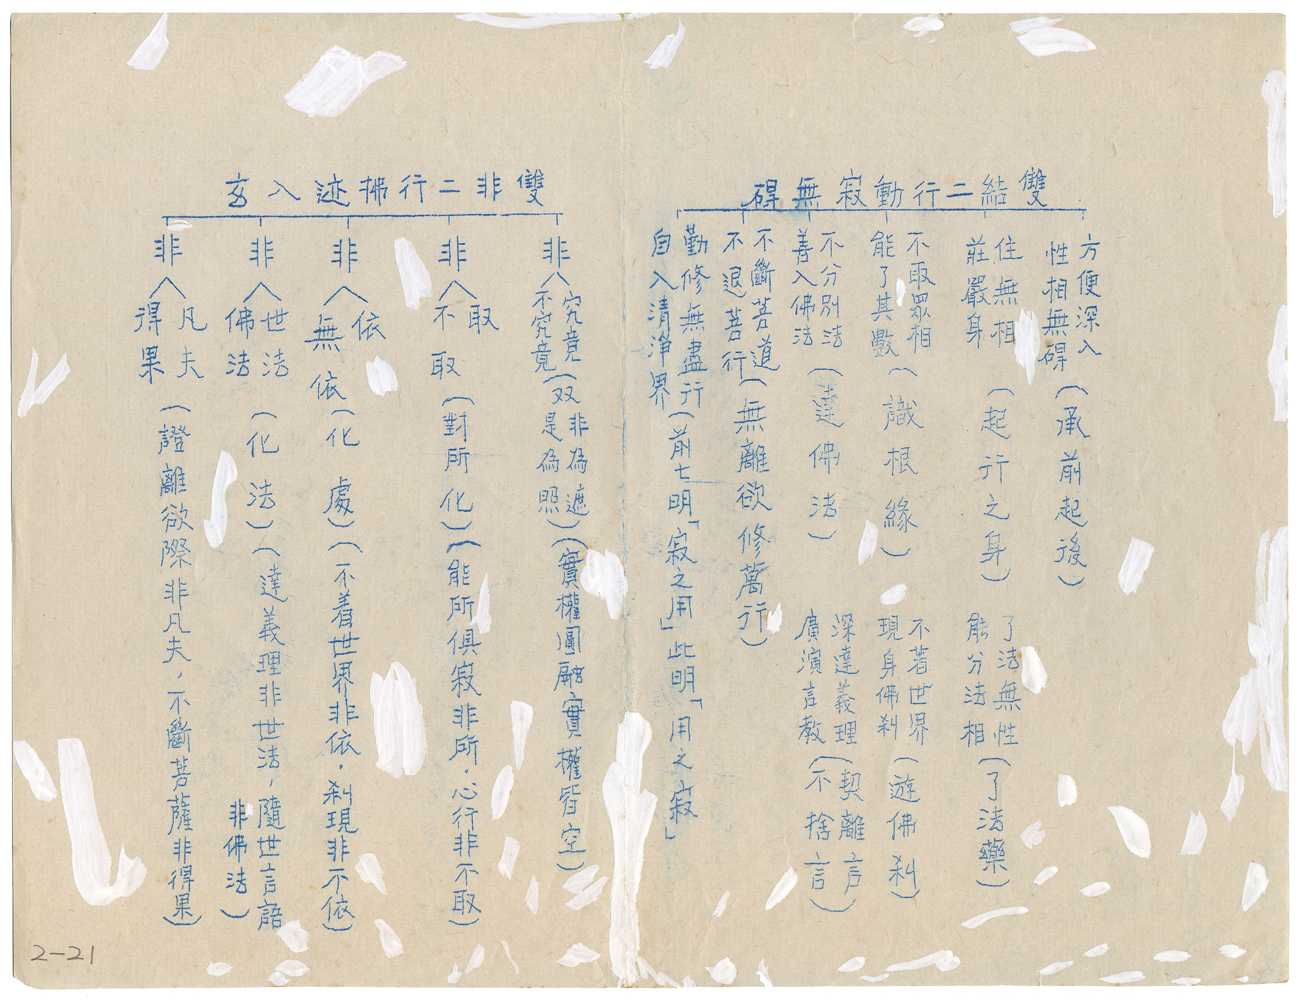 雙結二行動寂無碍
方便深入
性相無碍
(承前起後)
住無相
莊嚴身
(起行之身)
了法無性
能分法相
(了法藥)
不取眾相
能了其數
(識根緣)
不著世界
現身佛剎
(遊佛剎)
不分別法
善入佛法
(達佛法)
深達義理
廣演言教
(契離言
不捨言)
不斷菩道
不退菩行
(無離欲修萬行)
勤修無盡行
自入清淨界
(前七明「寂之用」此明「用之寂」)
雙非二行拂迹入玄
非
究竟
不究竟
(双非為遮
是為照)
(實權圓融實權皆空)
非
取
不取
(對所化)
(能所俱寂非所,心行非不取)
非
依
無依
(化處)
(不着世界非依,剎現非不依)
非
世法
佛法
(化法)
(達義理非世法,隨世言語
非佛法)
非
凡夫
得果
(證離欲際非凡夫,不斷菩薩非得果)
2-21